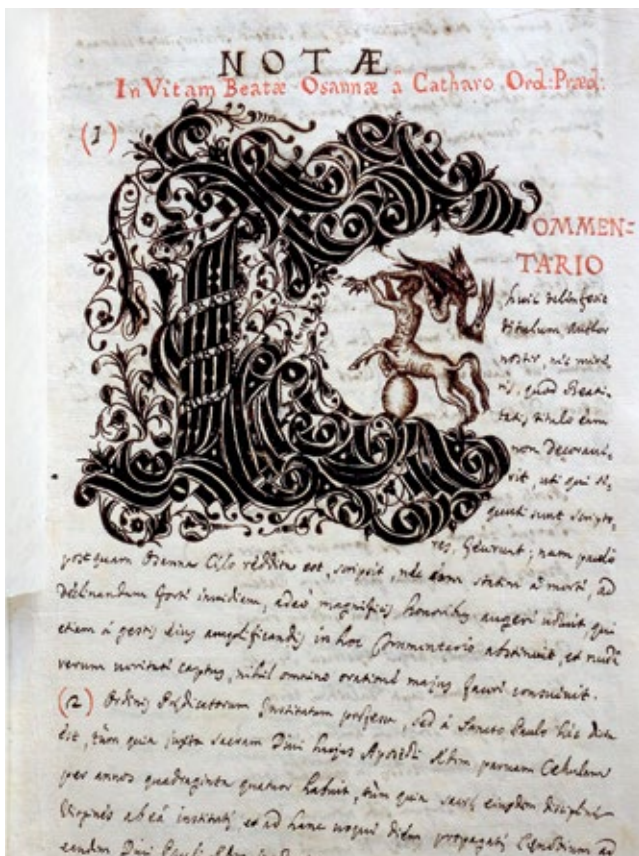 NOTÆ
In Vitam Beatæ Osannæ â Catharo Ord: Præd:
(1)
C
OMMEN=
TARIO
huic
titulum Author
noster, nec
quod Beati-
tatis titulo eam
non decoraue-
rit, uti qui se-
quuti sunt Scripto-
res, fecerunt; nam paulo
postquam Osanna Cælo reddita est, scripsit, nec eam statim à morte, ad
declinandum invidiam, adeò magnificis honoribus augeri voluit, qui
etiam à gestis eius amplificandis in hoc Commentario abstinuit, et nuda
verum captus, nihil omnino
(2) Ordinis Prædicatorum Institutum professa, sed à Sancto Paulo hic dicta
est, tùm quia juxta sacram Divi hujus Apostoli Ædem parvam Cellulam
per annos quadraginta quatuor habuit, tùm quia sacræ eiusdem disciplinæ
Virgines ab eâ et ad hanc usque diem
eandem Divi Pauli